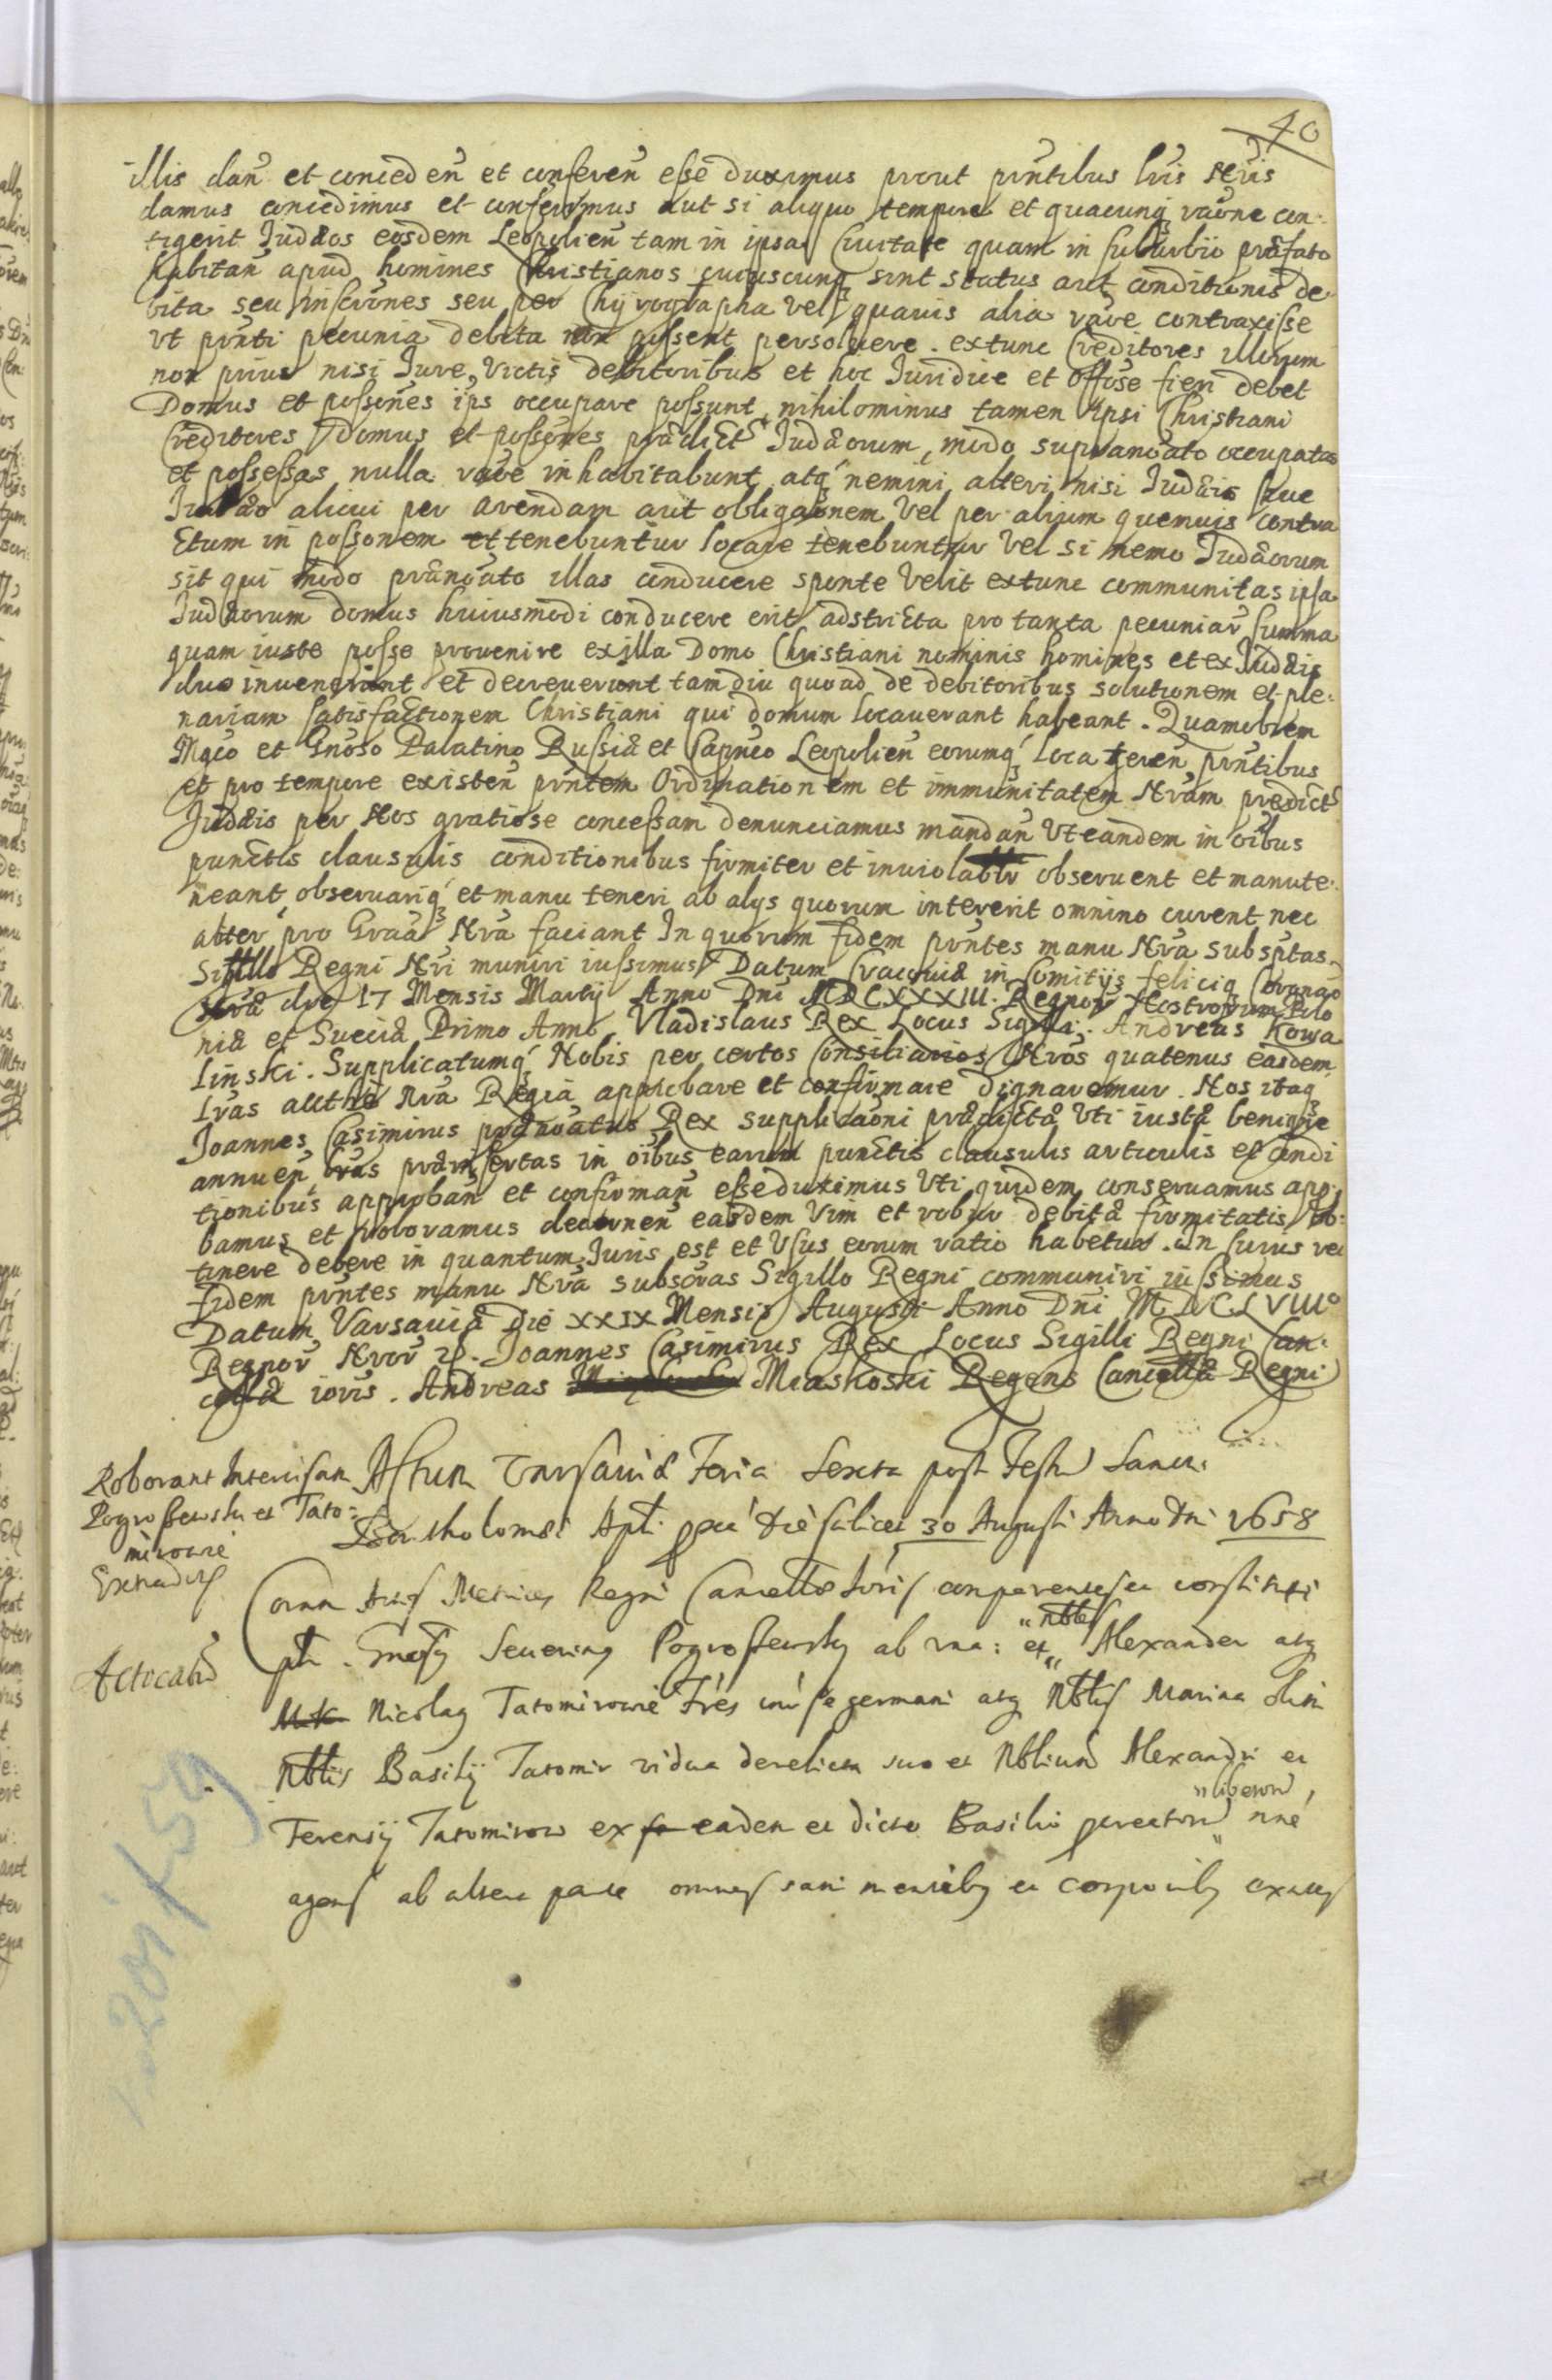 40
illis dañ et conceden̄ et conferen̄ esse duximus prout pn̄tibus lr̄is Nr̄is
damus concedimus et conferimus aut si aliquo tempore et quacunq raōne con-
tigerit Judæos eosdem Leopolien̄ tam in ipsa Civitate quam in suburbio præfato
habitan̄ apud homines Christianos cuiuscunq sint status aut conditionis de-
bita seu inscr̄nes seu per Chyrographa vel quavis alia rāoe contraxisse
ut pn̄ti pecunia debita non possent persolvere. extunc Creditores illorum
non prius nisi Jure Victis debitoribus et hoc Juridice et Off̄ose fieri debet
Domus et possōnes ips occupare possunt, nihilominus tamen Ipsi Christiani
Creditores domus et possōnes prædict Judæorum, modo supranōato occupatas
et possessas nulla rāoe inhabitabunt atq nemini alteri nisi Judæis sive
Judæo alicui per arendam aut obligāonem Vel per alium quemvis contra
ctum in possōnem et tenebuntur locare tenebuntur Vel si nemo Judæorum
sit qui modo prænōato illas conducere sponte Velit extunc communitas ipsa
Judæorum domus huiusmodi conducere erit adstricta pro tanta pecuniar̄ summa
quam iuste posse provenire ex illa Domo Christiani nominis homines et ex Judæis
duo invenerint et decreverunt tam diu quoad de debitoribus solutionem et ple-
nariam satisfactionem Christiani qui domum locaverant habeant. Quamobrem
Mgco et Gnōso Palatino Russiæ et Capn̄eo Leopolien̄ eorumq loca teren̄ pn̄tibus
et pro tempore existen̄ pn̄tem Ordinationem et immunitatem Nr̄am predict
Judæis per Nos gratiose concessam denunciamus mandan̄ Ut eandem in oībus
punctis clausulis conditionibus firmiter et inviolabtr observent et manute-
neant, observariq et manu teneri ab alys quorum intererit omnino curent nec
aliter pro Grāa Nr̄a faciant In quorum fidem pn̄tes manu Nr̄a subsptas
Sigillo Regni Nr̄i muniri iussimus Datum Cracoviæ in Comitijs felicis Coronāo
Nr̄æ die 17 Mensis Martij Anno Dn̄i MDCXXXIII. Regnor̄ Nostrorum Polo
niæ et Sueciæ Primo Anno Vladislaus Rex Locus Sigilli. Andreas Kowa
linski. Supplicatumq Nobis per certos Consiliarios Nr̄os quatenus easdem
lr̄as aucthē Nr̄a Regia approbare et confirmare dignaremur. Nos itaq
Joannes Casimirus prænōatus Rex supplicāoni prædictæ Uti iustæ benigne
annuen̄ lr̄as præinsertas in oībus earum punctis clausulis articulis et condi
tionibus approban̄ et confirman̄ esse duximus Uti quidem conservamus appro
bamus et roboramus decernen̄ easdem Vim et robur debitæ firmitatis ob-
tinere debere in quantum Juris est et Usus eorum ratio habetur. In cuius rei
fidem pn̄tes manu Nr̄a subscr̄as Sigillo Regni communiri iussimus
Datum Varsaviæ Die XXIX Mensis Augusti Anno Dn̄i MDCLVIIIo
Regnor̄ Nror̄ Joannes Casimirus Rex Locus Sigilli Regni Can-
cellæ ioris. Andreas Miaskoski Regens Cancellæ Regni
Roborant Intercisam
Pogroszewski et Tato-
mirowie
Extradit
Actum Varsaviæ Feria Sexta post Festū Sancti
Bartholomæi Apli die scilicet 30 Augusti Anno Dni 1658
Coram Actis Metrices Regni Cancellæ ioris comparentes et constituti
Gnosus Severinus Pogroszewsky ab una: et Nobles Alexander atq
Nicolaus Tatomirowie frēs inter se germani atq Nobilis Marina olim
Nobilis Basilij Tatomir vidua derelicta suo et Nobilium Alexandri et
Terensij Tatomirow ex eadem et dicto Basilio procreatorū liberorū nn̄e
agens ab altera parte omnes sani mentibus et corporibus existen